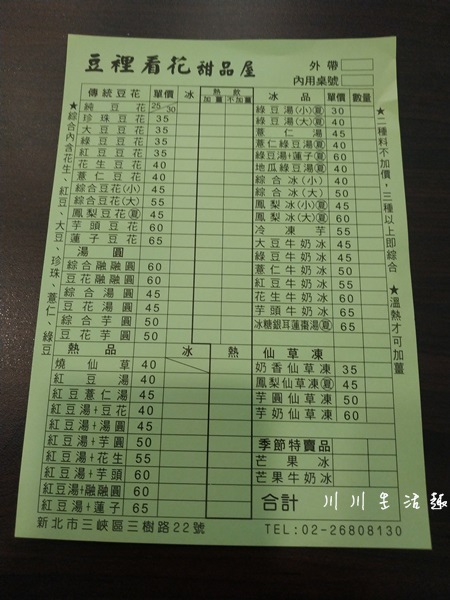 豆裡看花 甜品屋
外帶
內用桌號
傳統豆花 單價 冰 熱飲 加薑 不加薑
純豆花 25/30
珍珠豆花 35
大豆豆花 35
綠豆豆花 35
紅豆豆花 35
花生豆花 40
薏仁豆花 40
綜合豆花(小) 45
綜合豆花(大) 55
鳳梨豆花夏 45
芋頭豆花 60
蓮子豆花 65
湯圓
綜合融融圓 60
豆花融融圓 60
綜合湯圓 45
豆花湯圓 45
綜合芋圓 50
豆花芋圓 50
熱品 冰 熱
燒仙草 40
紅豆湯 40
紅豆薏仁湯 45
紅豆湯+豆花 40
紅豆湯+湯圓 45
紅豆湯+芋圓 50
紅豆湯+花生 55
紅豆湯+芋頭 60
紅豆湯+融融圓 60
紅豆湯+蓮子 65
冰品 單價 數量
綠豆湯(小)夏 30
綠豆湯(大)夏 40
薏仁湯 45
薏仁綠豆湯夏 40
綠豆湯+蓮子夏 60
地瓜綠豆湯夏 40
綜合冰(小) 40
綜合冰(大) 50
鳳梨冰(小)夏 45
鳳梨冰(大)夏 60
冷凍芋 55
大豆牛奶冰 45
綠豆牛奶冰 45
薏仁牛奶冰 50
紅豆牛奶冰 55
花生牛奶冰 60
芋頭牛奶冰 65
冰糖銀耳蓮棗湯夏 65
仙草凍
奶香仙草凍 35
鳳梨仙草凍夏 45
芋圓仙草凍 50
芋奶仙草凍 60
季節特賣品
芒果冰
芒果牛奶冰
合計
★綜合內含花生、紅豆、大豆、珍珠、薏仁、綠豆
★二種料不加價,三種以上即綜合 ★溫熱才可加薑
新北市三峽區三樹路22號
TEL:02-26808130
川川生活趣